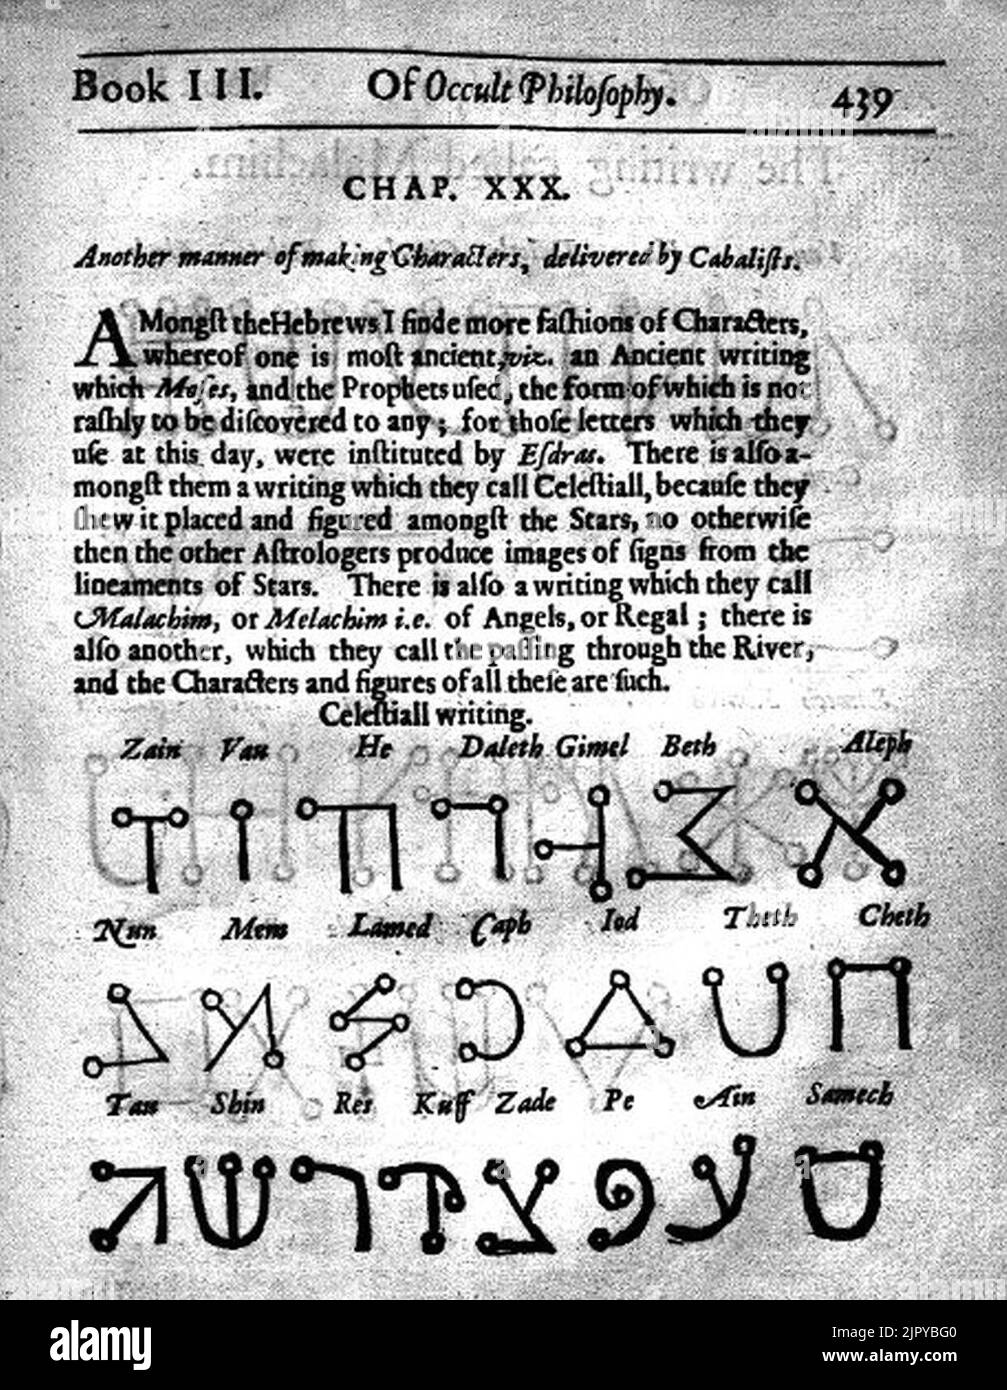 Book III. Of Occult Philoſophy. 439
CHAP. XXX.
Another manner of making Characters, delivered by Cabaliſts.
AMongſt the Hebrews I finde more faſhions of Characters,
whereof one is moſt ancient, viz. an Ancient writing
which Moſes, and the Prophets uſed, the form of which is not
raſhly to be diſcovered to any; for thoſe letters which they
uſe at this day, were inſtituted by Eſdras. There is alſo a-
mongſt them a writing which they call Celeſtiall, becauſe they
ſhew it placed and figured amongſt the Stars, no otherwiſe
then the other Aſtrologers produce images of ſigns from the
lineaments of Stars. There is alſo a writing which they call
Malachim, or Melachim i.e. of Angels, or Regal; there is
alſo another, which they call the paſſing through the River,
and the Characters and figures of all theſe are ſuch.
Celeſtiall writing.
Zain Vau He Daleth Gimel Beth Aleph
Nun Mem Lamed Caph Iod Theth Cheth
Tau Shin Res Kuff Zade Pe Ain Samech
alamy
Image ID: 2JPYBG0
www.alamy.com